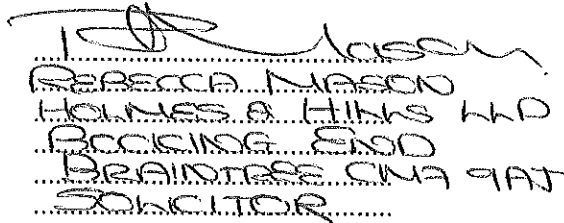 R Mason
REBECCA MASON
HOLMES & HILLS LLP
BOCKING END
BRAINTREE CM7 9AJ
SOLICITOR